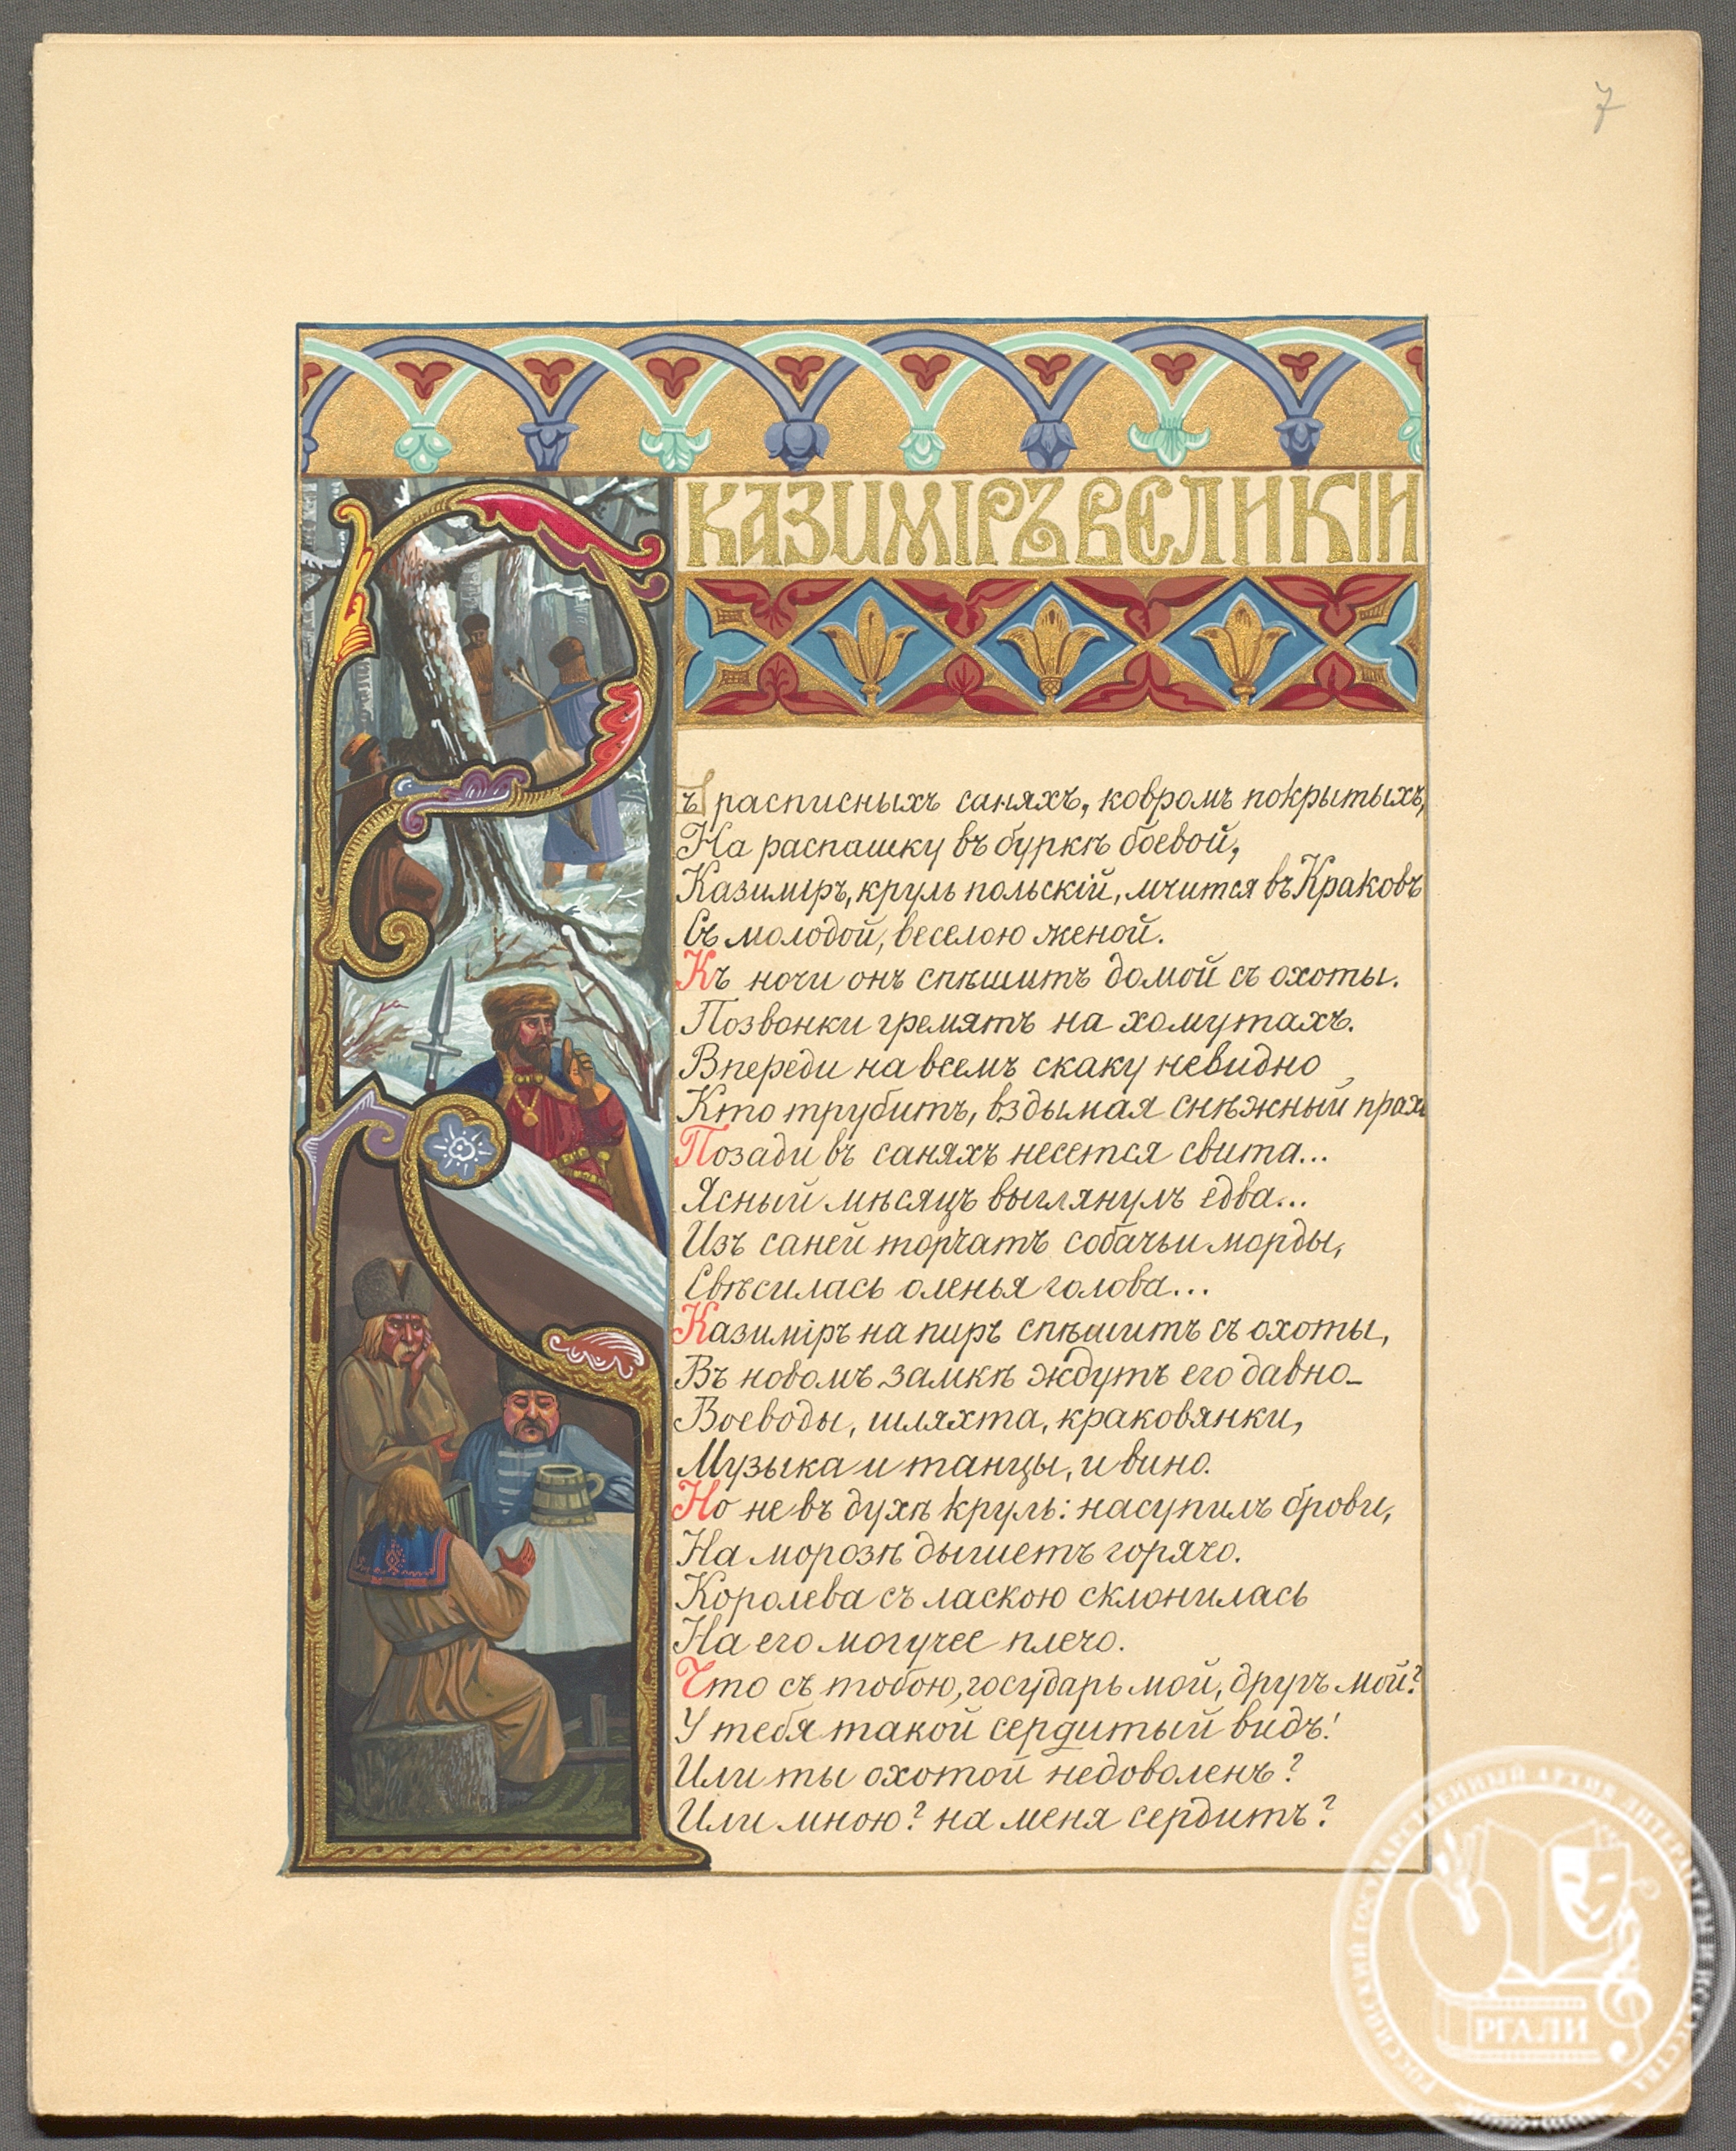 7
КАЗИМІРЪ ВЕЛИКІИ
Въ расписныхъ саняхъ, ковромъ покрытыхъ,
На распашку въ буркѣ боевой,
Казиміръ, круль польскій, мчится въ Краковъ
Съ молодой, веселою женой.
Къ ночи онъ спѣшитъ домой съ охоты.
Позвонки гремятъ на хомутахъ.
Впереди на всемъ скаку невидно
Кто трубитъ, вздымая снѣжный прахъ
Позади въ саняхъ несется свита...
Ясный мѣсяцъ выглянулъ едва...
Изъ саней торчатъ собачьи морды,
Свѣсилась оленья голова...
Казиміръ на пиръ спѣшитъ съ охоты,
Въ новомъ замкѣ ждутъ его давно-
Воеводы, шляхта, краковянки,
Музыка и танцы, и вино.
Но не въ духѣ круль: насупилъ брови,
На морозѣ дышетъ горячо.
Королева съ ласкою склонилась
На его могучее плечо.
Что съ тобою, государь мой, другъ мой?
У тебя такой сердитый видъ!
Или ты охотой недоволенъ?
Или мною? на меня сердитъ?
РОССИЙСКИЙ ГОСУДАРСТВЕННЫЙ АРХИВ ЛИТЕРАТУРЫ И ИСКУССТВА
РГАЛИ